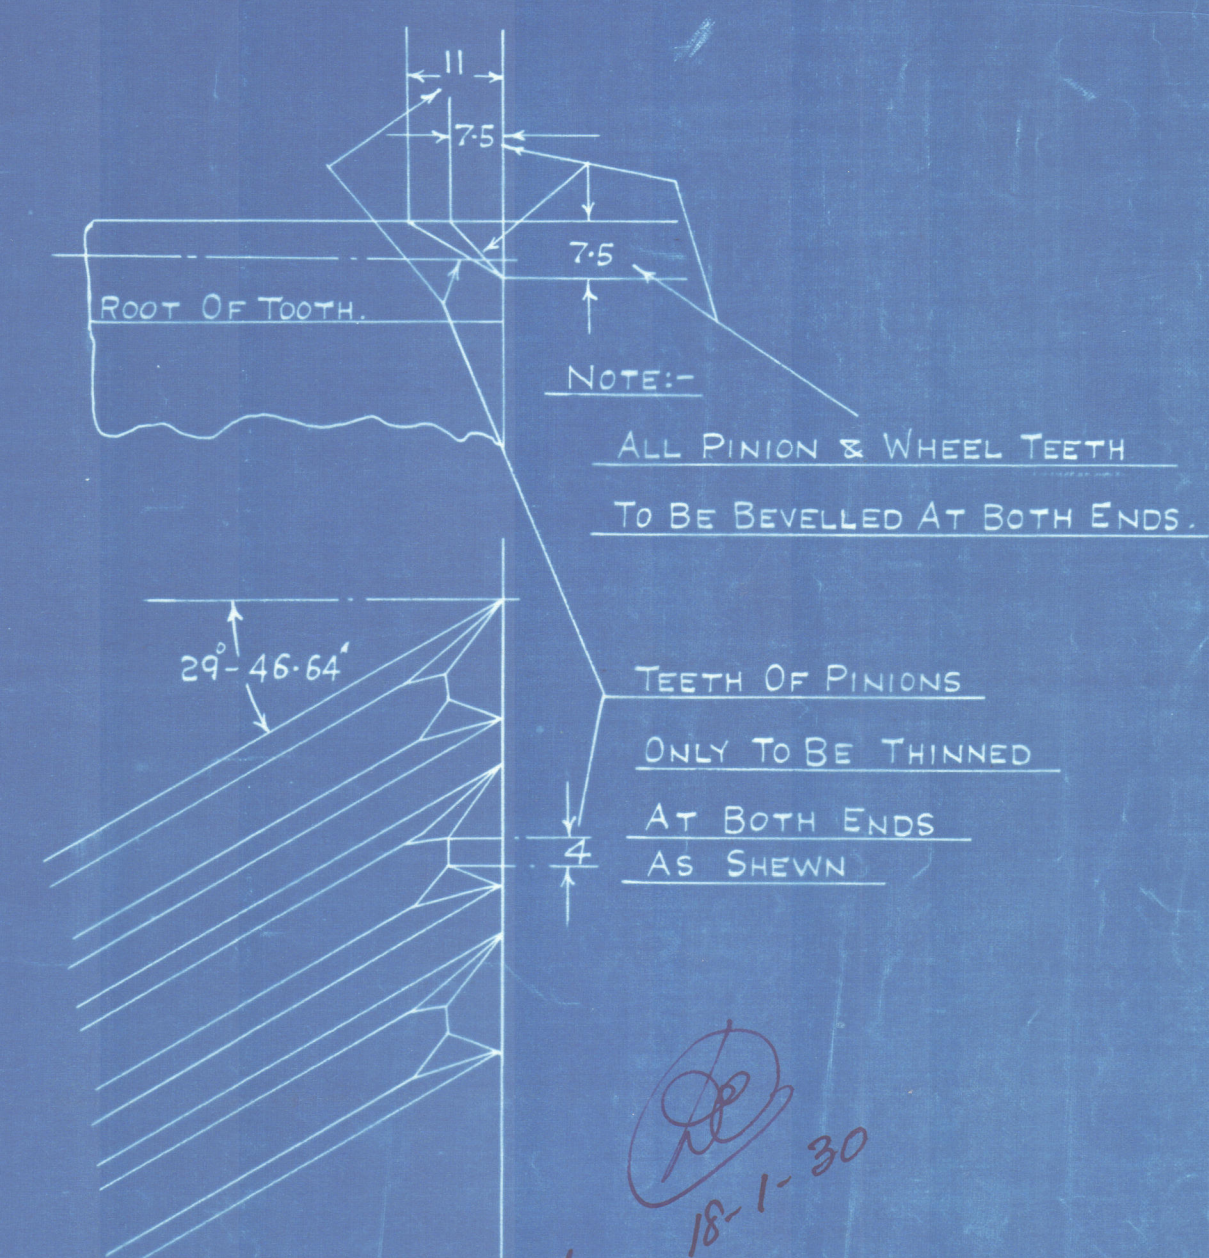 11
7.5
7.5
ROOT OF TOOTH.
NOTE:-
ALL PINION & WHEEL TEETH
TO BE BEVELLED AT BOTH ENDS.
29°-46.64'
TEETH OF PINIONS
ONLY TO BE THINNED
AT BOTH ENDS
4
AS SHEWN
18-1-30